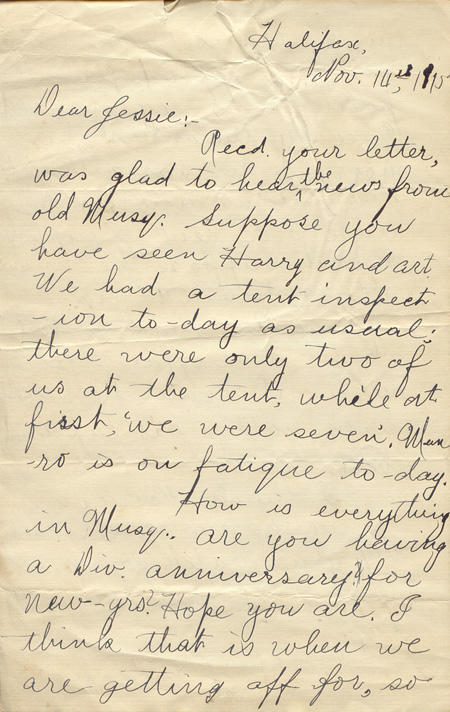 Halifax,
Nov. 14th, 1915
Dear Jessie:-
Recd. your letter,
was glad to hear the news from
old Musq. Suppose you
have seen Harry and art.
We had a tent inspect
-ion to-day as usual;
there were only two of
us at the tent, while at
first, "we were seven". Mun
-ro is on fatigue to-day.
How is everything
in Musq.. are you having
a Div. anniversary? for
new-yrs? Hope you are. I
think that is when we
are getting off for, so